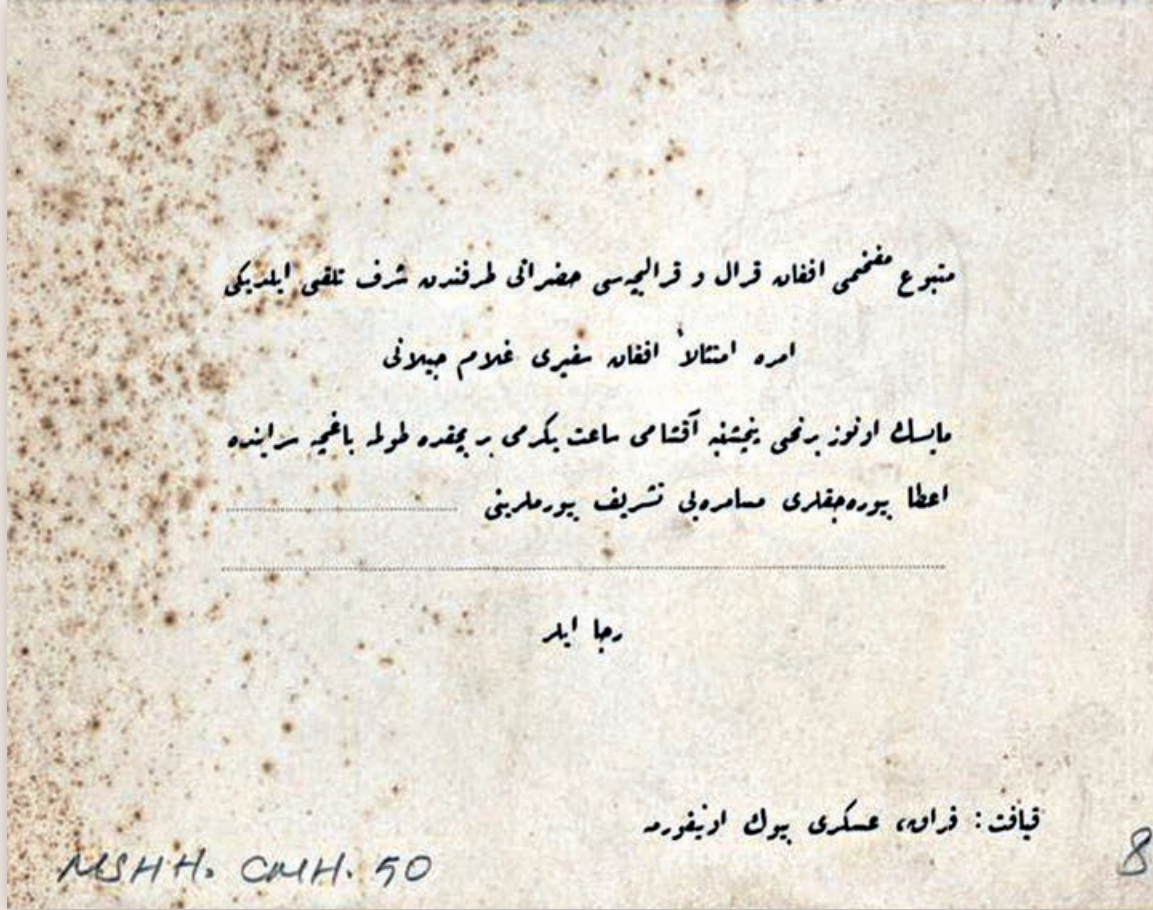 متبوع مفخمی افغان قرال و قرالیچه‌سی حضراتی طرفندن شرف تلقی ایلدیكی
امره امتثالاً افغان سفیری غلام جیلانی
مایسك اوتوز برنجی پنجشنبه آقشامی ساعت یكرمی بر بچقده طولمه باغچه سراینده
اعطا بیوره‌جقلری مسامره‌یی تشریف بیورملرینی
رجا ایلر
قیافت: فراق، عسكری بیوك اونیفورمه
MSHH. CMH. 50
8